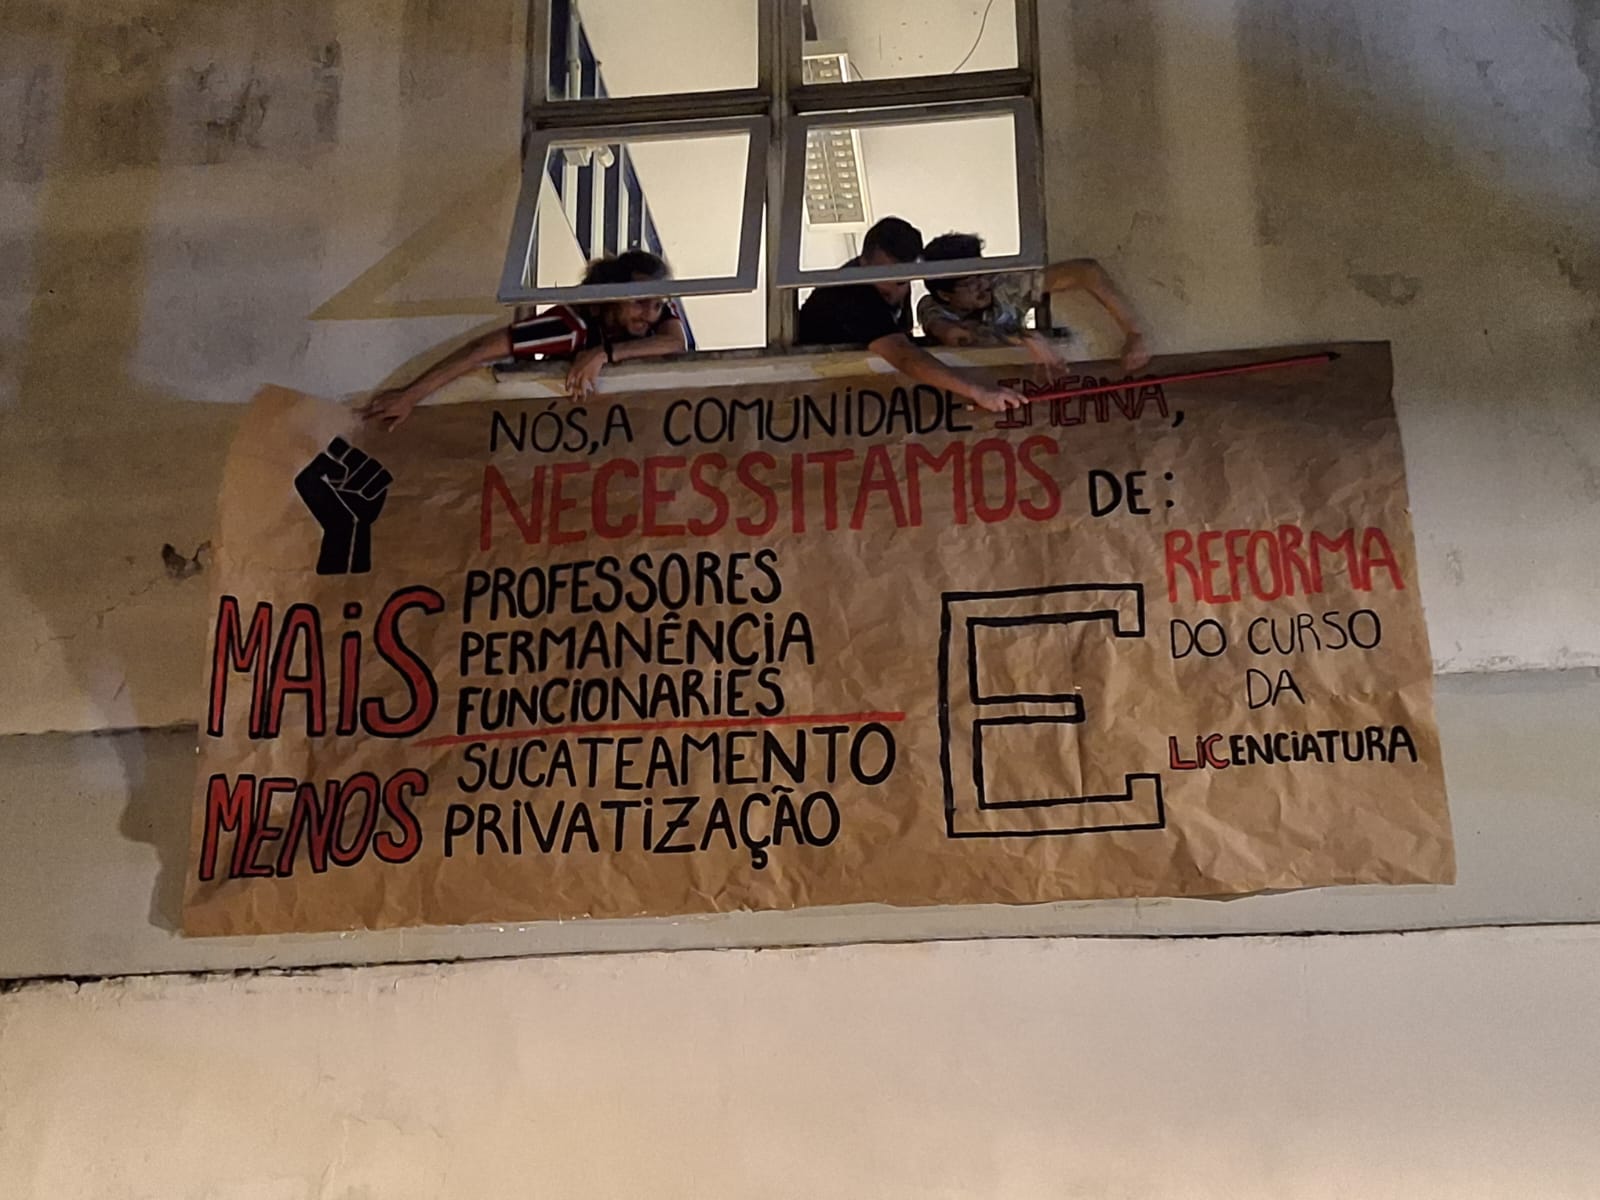 NÓS, A COMUNIDADE IMEANA,
NECESSITAMOS DE:
MAIS
PROFESSORES
PERMANÊNCIA
FUNCIONARIES
MENOS
SUCATEAMENTO
PRIVATIZAÇÃO
E
REFORMA
DO CURSO
DA
LICENCIATURA